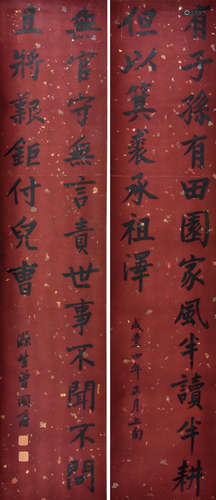 有子孫有田園家風半讀半耕
但以箕裘承祖澤
咸豐四年正月上旬
無官守無言責世事不聞不問
且將艱鉅付兒曹
滌生曾國藩